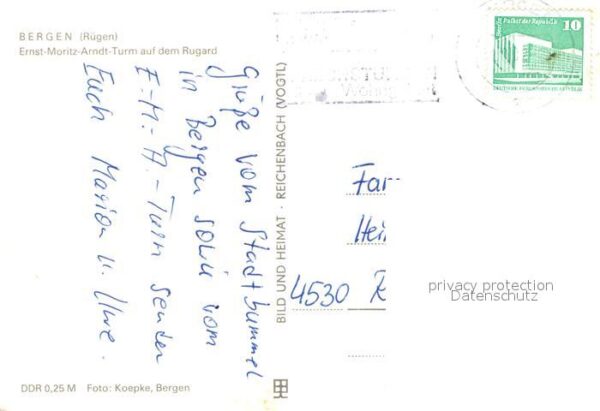 BERGEN (Rügen)
Ernst-Moritz-Arndt-Turm auf dem Rugard
Grüße vom Stadtbummel
in Bergen sowie vom
E.-M.-A.-Turm senden
Euch Marion u. Uwe.
DDR 0,25 M Foto: Koepke, Bergen
BILD UND HEIMAT · REICHENBACH (VOGTL)
Berlin, Palast der Republik
10
DEUTSCHE DEMOKRATISCHE REPUBLIK
Fam
Hei
4530 R
privacy protection
Datenschutz